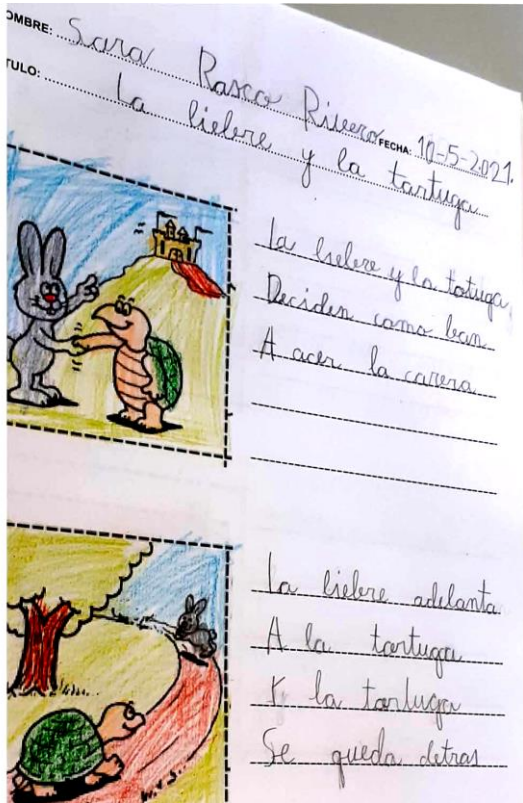 OMBRE: Sara Rasco Rivero FECHA: 10-5-2021.
TULO: La liebre y la tortuga
La liebre y la totuga,
Deciden como ban
A acer la carera
La liebre adelanta
A la tortuga
Y la tortuga
Se queda detras